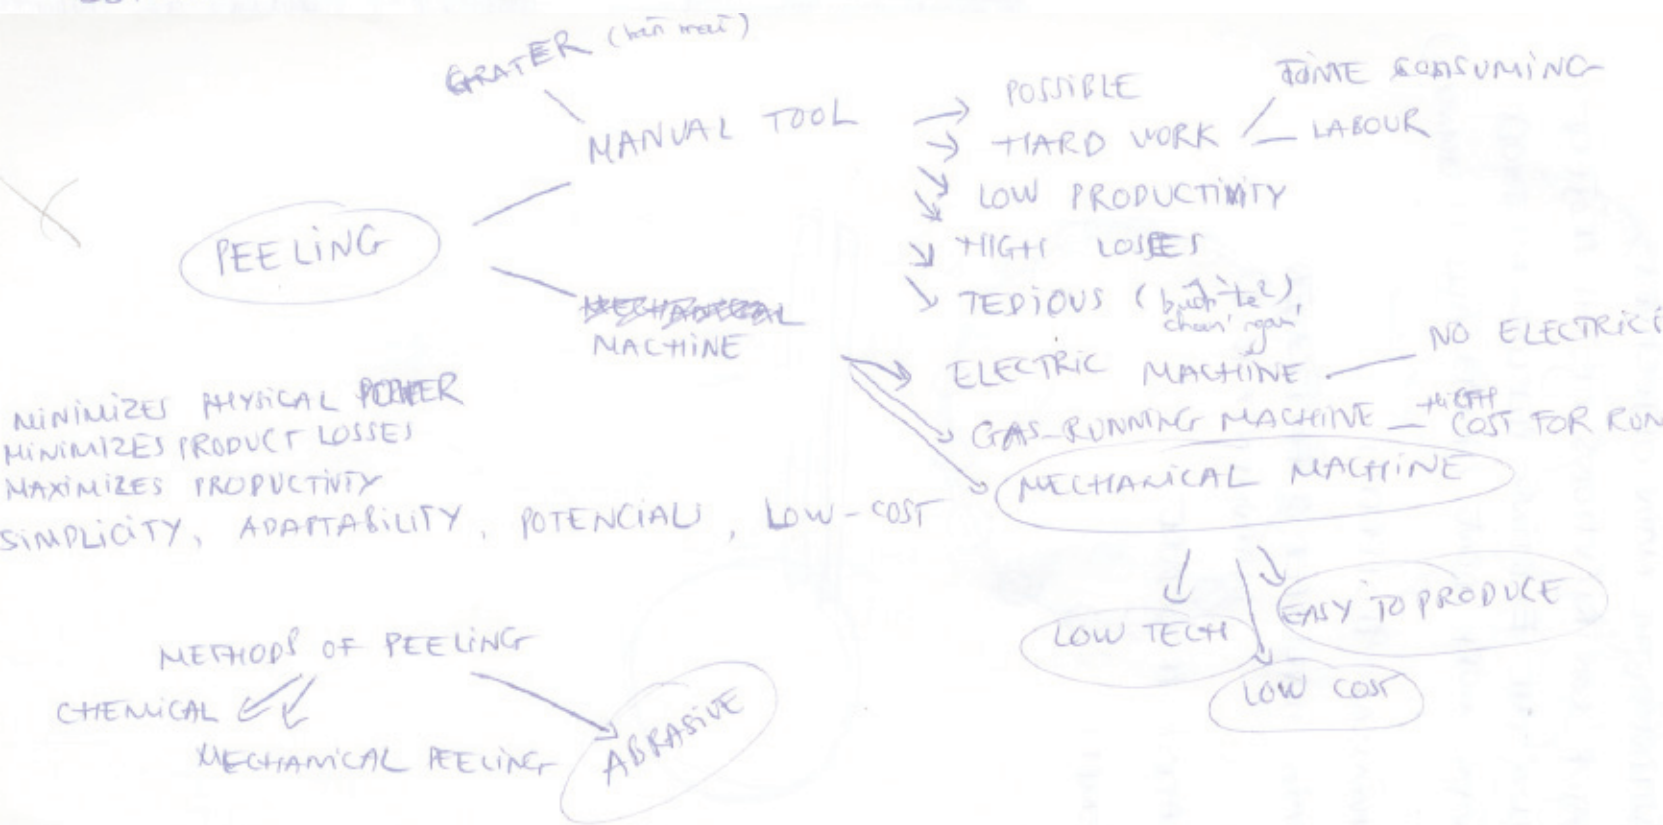 GRATER
MANUAL TOOL
POSSIBLE
HARD WORK
TIME CONSUMING
LABOUR
LOW PRODUCTIVITY
HIGH LOSSES
TEDIOUS (
PEELING
MACHINE
ELECTRIC MACHINE
NO ELECTRICI
GAS-RUNNING MACHINE
HIGH COST FOR RUN
MECHANICAL MACHINE
LOW TECH
EASY TO PRODUCE
LOW COST
MINIMIZES PHYSICAL POWER
MINIMIZES PRODUCT LOSSES
MAXIMIZES PRODUCTIVITY
SIMPLICITY, ADAPTABILITY, POTENCIAL, LOW-COST
METHODS OF PEELING
CHEMICAL
MECHANICAL PEELING
ABRASIVE